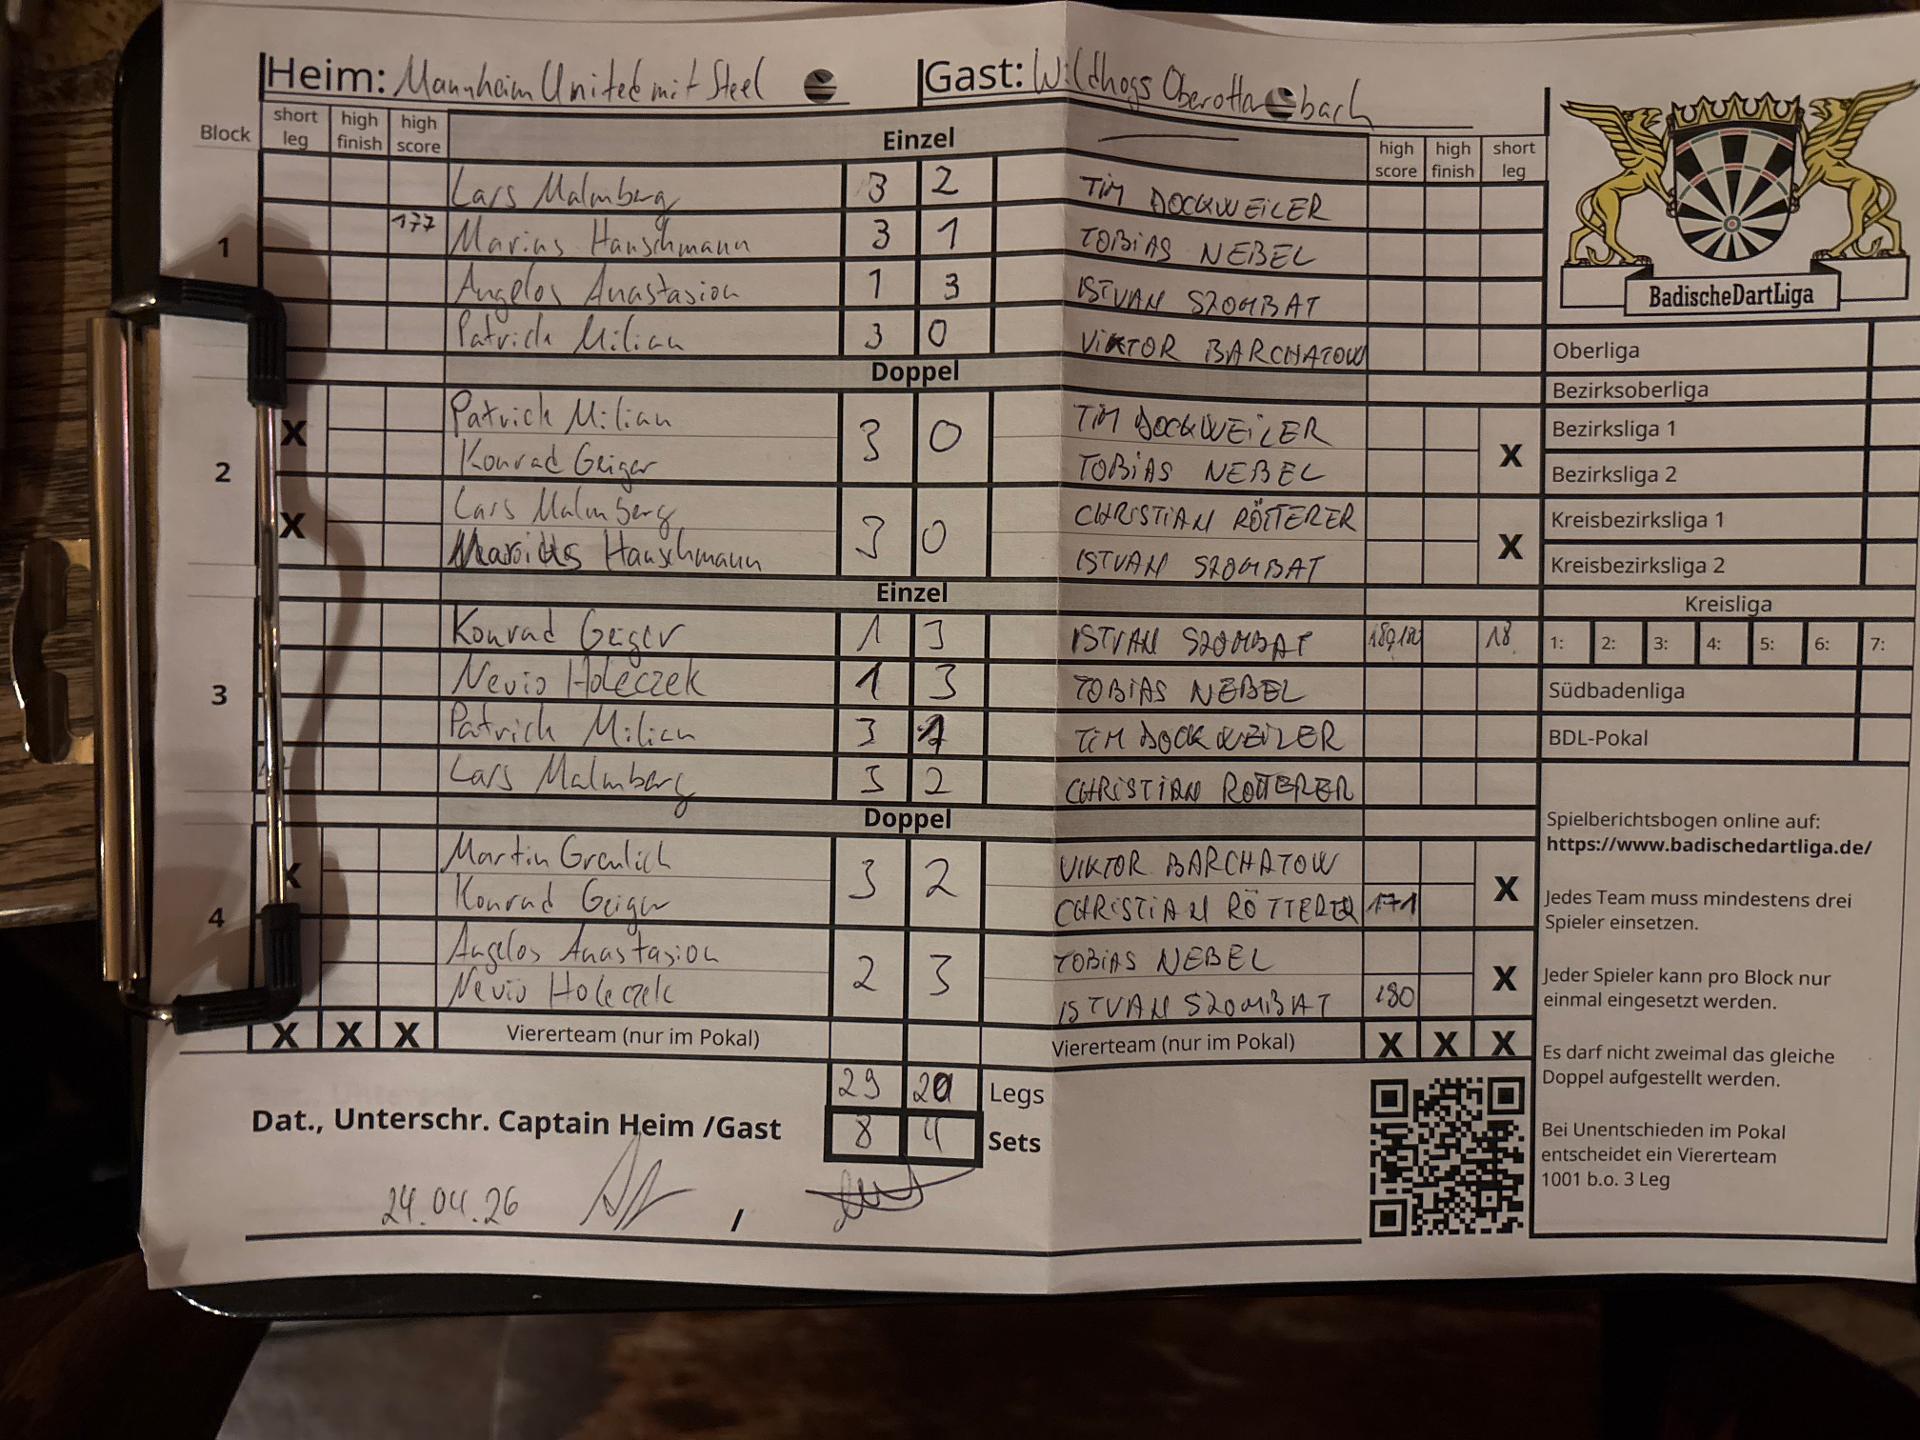 Heim: Mannheim United mit Steel Gast: Wildhogs Oberotterbach
Block short leg high finish high score Einzel high score high finish short leg
Lars Malmberg 3 2 TIM DOCKWEILER
1 177 Marius Hanschmann 3 1 TOBIAS NEBEL
Angelos Anastasiou 1 3 ISTVAN SZOMBAT
Patrick Milian 3 0 VIKTOR BARCHATOW
Doppel
2 X Patrick Milian 3 0 TIM DOCKWEILER X
Konrad Geiger TOBIAS NEBEL
X Lars Malmberg 3 0 CHRISTIAN RÖTTERER X
Marius Hanschmann ISTVAN SZOMBAT
Einzel
3 Konrad Geiger 1 3 ISTVAN SZOMBAT 18
Nevio Holeczek 1 3 TOBIAS NEBEL
Patrick Milian 3 1 TIM DOCKWEILER
Lars Malmberg 3 2 CHRISTIAN RÖTTERER
Doppel
4 X Martin Greulich 3 2 VIKTOR BARCHATOW X
Konrad Geiger CHRISTIAN RÖTTERER 171
Angelos Anastasiou 2 3 TOBIAS NEBEL X
Nevio Holeczek ISTVAN SZOMBAT 180
X X X Viererteam (nur im Pokal) Viererteam (nur im Pokal) X X X
29 20 Legs
Dat., Unterschr. Captain Heim /Gast 8 4 Sets
24.04.26 /
BadischeDartLiga
Oberliga
Bezirksoberliga
Bezirksliga 1
Bezirksliga 2
Kreisbezirksliga 1
Kreisbezirksliga 2
Kreisliga
1: 2: 3: 4: 5: 6: 7:
Südbadenliga
BDL-Pokal
Spielberichtsbogen online auf:
https://www.badischedartliga.de/
Jedes Team muss mindestens drei
Spieler einsetzen.
Jeder Spieler kann pro Block nur
einmal eingesetzt werden.
Es darf nicht zweimal das gleiche
Doppel aufgestellt werden.
Bei Unentschieden im Pokal
entscheidet ein Viererteam
1001 b.o. 3 Leg